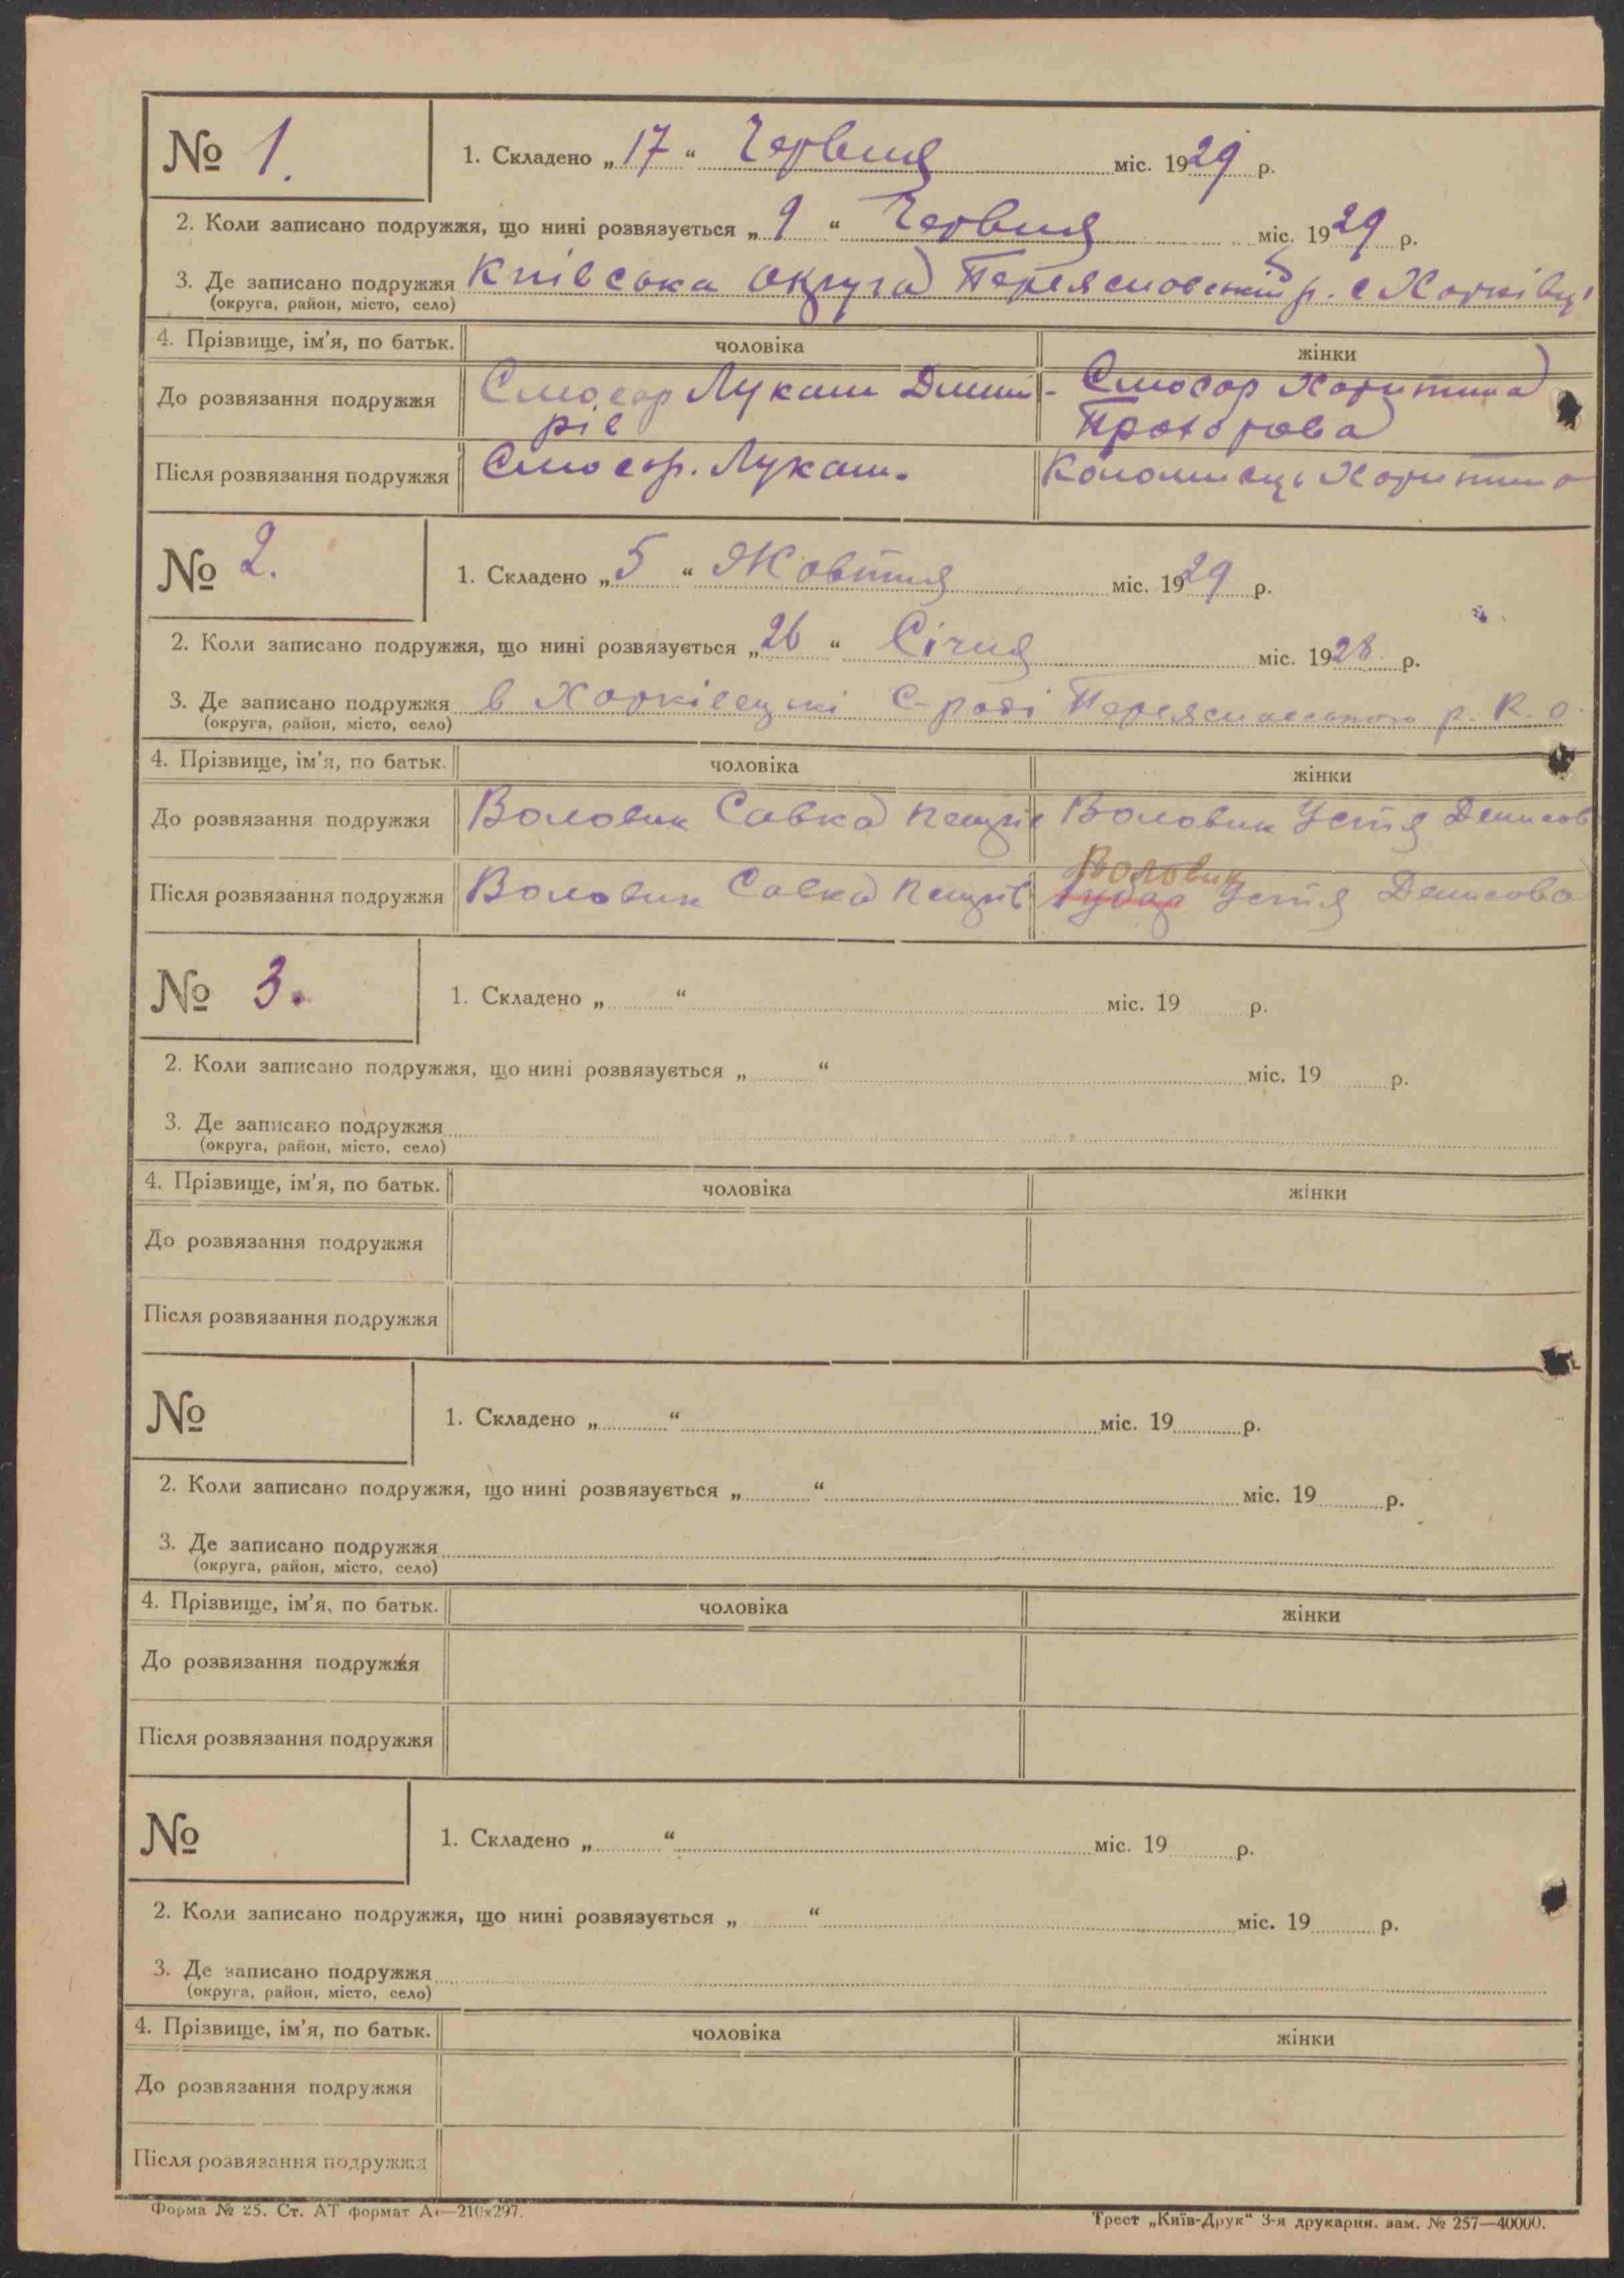 № 1.
1. Складено „17“ Червня міс. 1929 р.
2. Коли записано подружжя, що нині розвязується „9“ Червня міс. 1929 р.
3. Де записано подружжя Київська округа Переяславський р. с Харківці
(округа, район, місто, село)
4. Прізвище, ім'я, по батьк. чоловіка жінки
До розвязання подружжя Слюсар Лукаш Дмит- Слюсар Харитина
рів Прохорова
Після розвязання подружжя Слюсар. Лукаш. Коломієць Харитина
№ 2.
1. Складено „5“ Жовтня міс. 1929 р.
2. Коли записано подружжя, що нині розвязується „26“ Січня міс. 1928 р.
3. Де записано подружжя в Харківецькі С-раді Переяславського р. К. о.
(округа, район, місто, село)
4. Прізвище, ім'я, по батьк. чоловіка жінки
До розвязання подружжя Воловик Савка Воловик Устя Денисов
Воловик
Після розвязання подружжя Воловик Савка Устя Денисова
№ 3.
1. Складено „ “ міс. 19 р.
2. Коли записано подружжя, що нині розвязується „ “ міс. 19 р.
3. Де записано подружжя
(округа, район, місто, село)
4. Прізвище, ім'я, по батьк. чоловіка жінки
До розвязання подружжя
Після розвязання подружжя
№
1. Складено „ “ міс. 19 р.
2. Коли записано подружжя, що нині розвязується „ “ міс. 19 р.
3. Де записано подружжя
(округа, район, місто, село)
4. Прізвище, ім'я, по батьк. чоловіка жінки
До розвязання подружжя
Після розвязання подружжя
№
1. Складено „ “ міс. 19 р.
2. Коли записано подружжя, що нині розвязується „ “ міс. 19 р.
3. Де записано подружжя
(округа, район, місто, село)
4. Прізвище, ім'я, по батьк. чоловіка жінки
До розвязання подружжя
Після розвязання подружжя
Форма № 25. Ст. АТ формат А4—210х297.
Трест „Київ-Друк“ 3-я друкарня. зам. № 257—40000.